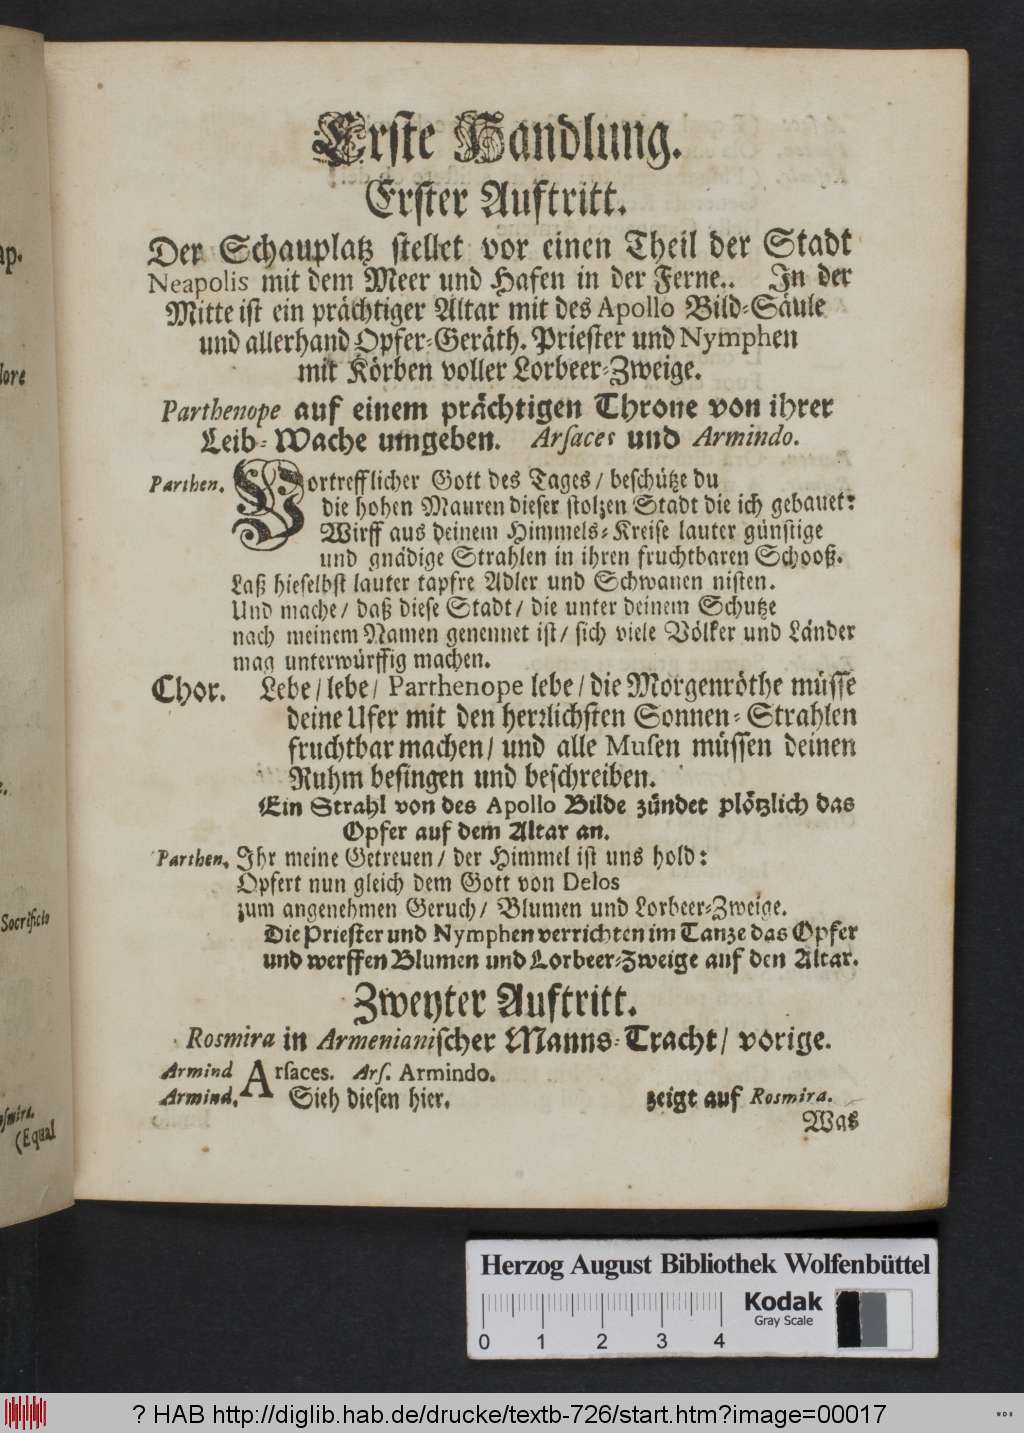 Erste Handlung.
Erster Auftritt.
Der Schauplatz stellet vor einen Theil der Stadt
Neapolis mit dem Meer und Hafen in der Ferne.. In der
Mitte ist ein prächtiger Altar mit des Apollo Bild-Säule
und allerhand Opfer-Geräth. Priester und Nymphen
mit Körben voller Lorbeer-Zweige.
Parthenope auf einem prächtigen Throne von ihrer
Leib-Wache umgeben. Arsaces und Armindo.
Parthen. Vortrefflicher Gott des Tages / beschütze du
die hohen Mauren dieser stolzen Stadt die ich gebauet:
Wirff aus deinem Himmels-Kreise lauter günstige
und gnädige Strahlen in ihren fruchtbaren Schooß.
Laß hieselbst lauter tapfre Adler und Schwanen nisten.
Und mache / daß diese Stadt / die unter deinem Schutze
nach meinem Namen genennet ist / sich viele Völker und Länder
mag unterwürffig machen.
Chor. Lebe / lebe / Parthenope lebe / die Morgenröthe müsse
deine Ufer mit den herrlichsten Sonnen-Strahlen
fruchtbar machen / und alle Musen müssen deinen
Ruhm besingen und beschreiben.
Ein Strahl von des Apollo Bilde zündet plötzlich das
Opfer auf dem Altar an.
Parthen. Ihr meine Getreuen / der Himmel ist uns hold:
Opfert nun gleich dem Gott von Delos
zum angenehmen Geruch / Blumen und Lorbeer-Zweige.
Die Priester und Nymphen verrichten im Tanze das Opfer
und werffen Blumen und Lorbeer-Zweige auf den Altar.
Zweyter Auftritt.
Rosmira in Armenianischer Manns-Tracht / vorige.
Armind Arsaces. Ars. Armindo.
Armind. Sieh diesen hier. zeigt auf Rosmira.
Was
lore
Socrificio
(Equal
Herzog August Bibliothek Wolfenbüttel
0 1 2 3 4
Kodak
Gray Scale
? HAB http://diglib.hab.de/drucke/textb-726/start.htm?image=00017